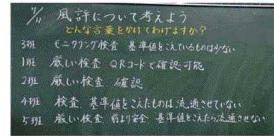 7/11 風評について考えよう
どんな言葉をかけてあげますか?
3班 モニタリング検査 基準値をこえているものは少ない
1班 厳しい検査 QRコードで確認可能
2班 厳しい検査 確認
4班 検査 基準値をこえたものは流通させていない
5班 厳しい検査 前より安全 基準値をこえたら流通させない